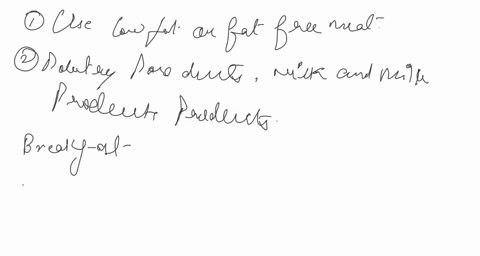 ① Use low fat or fat free meat
② Poultry Products, milk and milk
Products Products.
Breakfast-